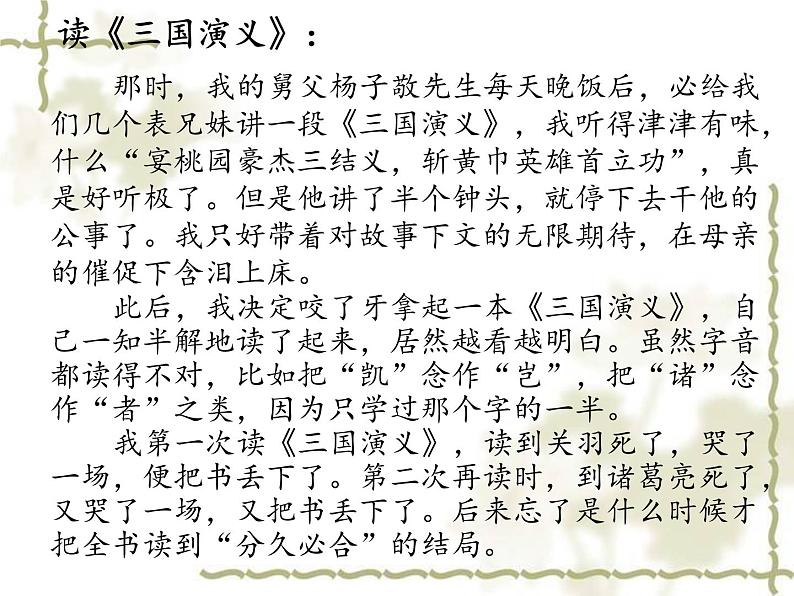 读《三国演义》：
那时，我的舅父杨子敬先生每天晚饭后，必给我
们几个表兄妹讲一段《三国演义》，我听得津津有味，
什么“宴桃园豪杰三结义，斩黄巾英雄首立功”，真
是好听极了。但是他讲了半个钟头，就停下去干他的
公事了。我只好带着对故事下文的无限期待，在母亲
的催促下含泪上床。
此后，我决定咬了牙拿起一本《三国演义》，自
己一知半解地读了起来，居然越看越明白。虽然字音
都读得不对，比如把“凯”念作“岂”，把“诸”念
作“者”之类，因为只学过那个字的一半。
我第一次读《三国演义》，读到关羽死了，哭了
一场，便把书丢下了。第二次再读时，到诸葛亮死了，
又哭了一场，又把书丢下了。后来忘了是什么时候才
把全书读到“分久必合”的结局。